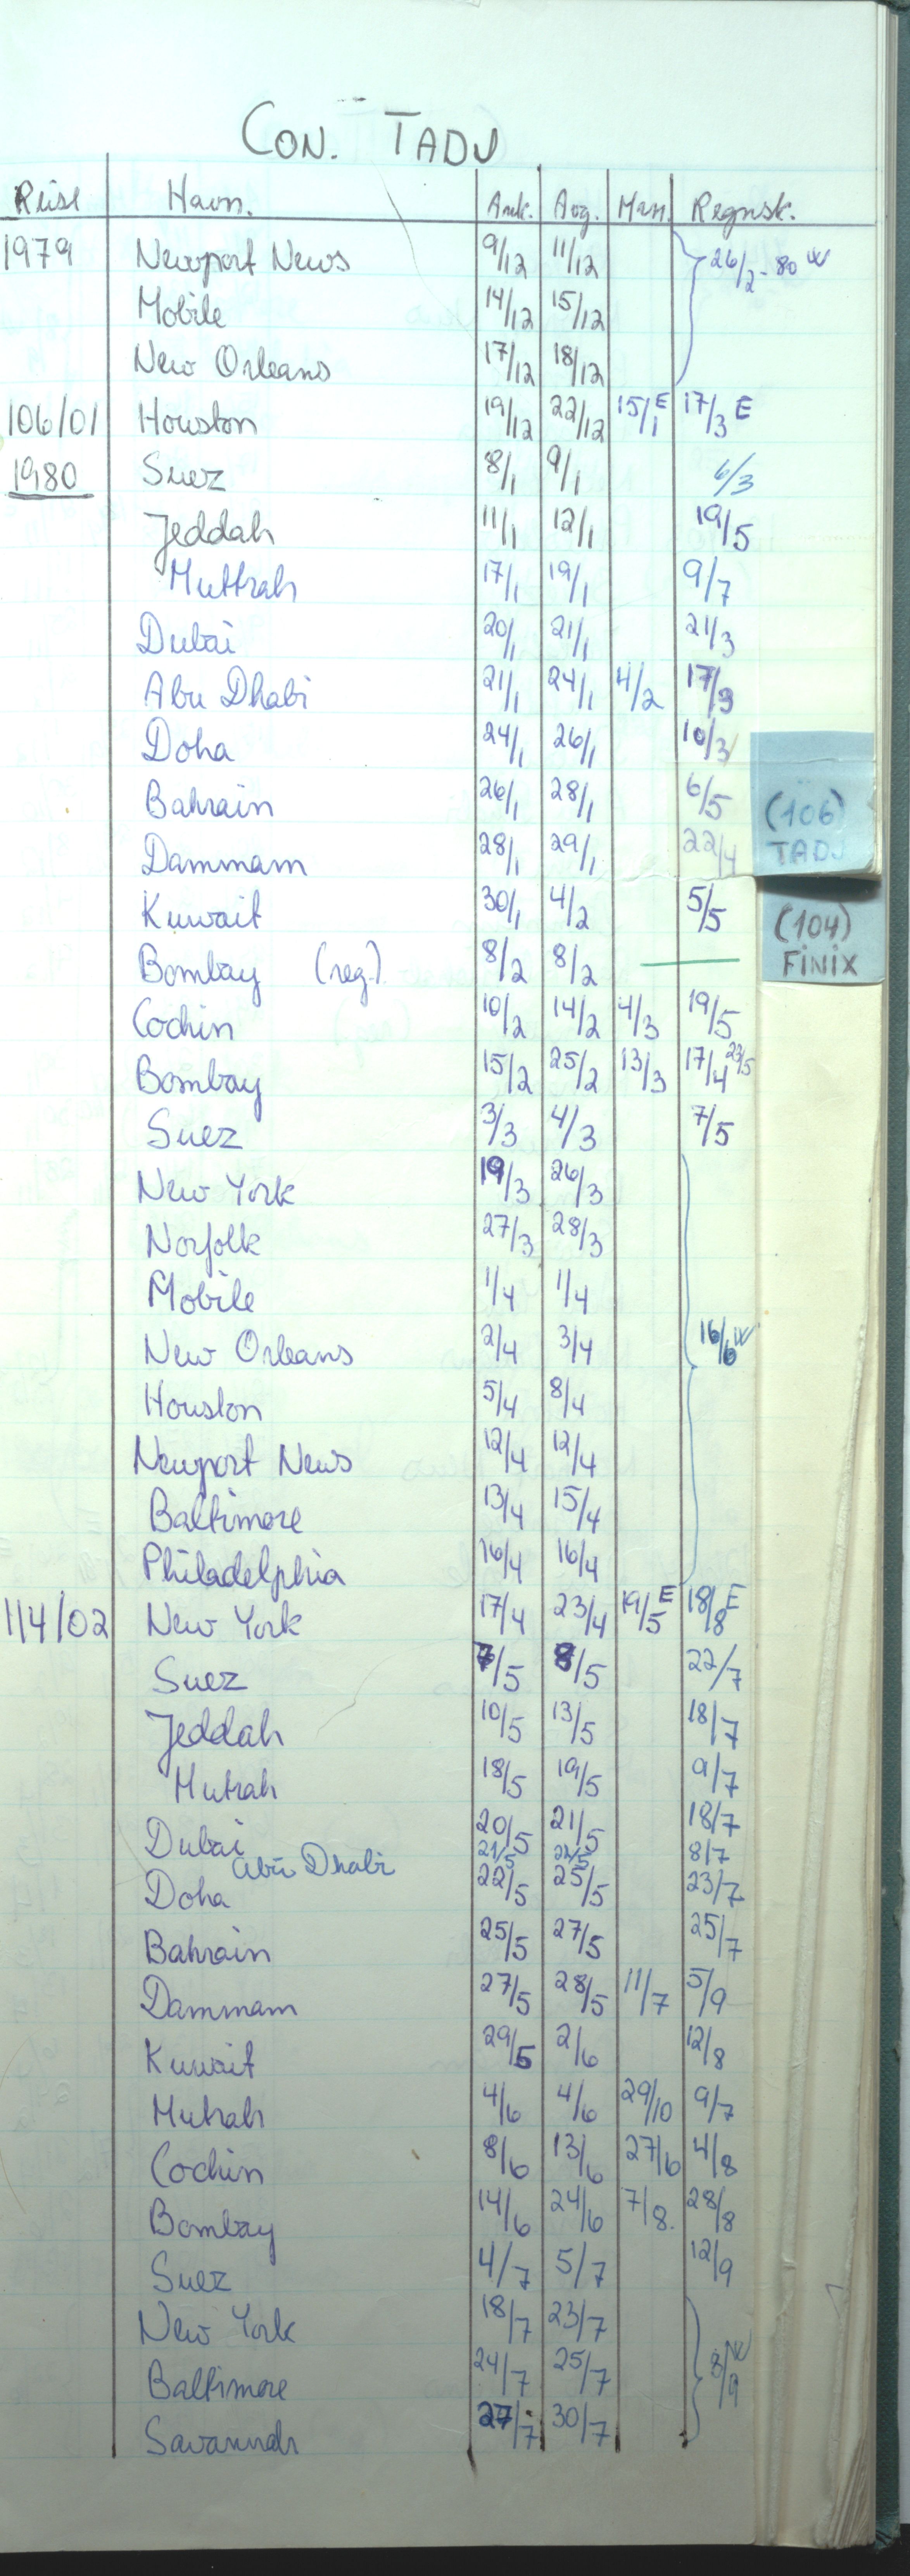 CON. TADJ
Reise Havn. Ank. Avg. Man. Regnsk.
1979 Newport News 9/12 11/12 26/2-80 W
Mobile 14/12 15/12
New Orleans 17/12 18/12
106/01 Houston 19/12 22/12 15/1 E 17/3 E
1980 Suez 8/1 9/1 6/3
Jeddah 11/1 12/1 19/5
Muttrah 17/1 19/1 9/7
Dubai 20/1 21/1 21/3
Abu Dhabi 21/1 24/1 4/2 17/3
Doha 24/1 26/1 10/3
Bahrain 26/1 28/1 6/5
(106)
TADJ
Dammam 28/1 29/1 22/4
Kuwait 30/1 4/2 5/5
(104)
FINIX
Bombay (reg.) 8/2 8/2
Cochin 10/2 14/2 4/3 19/5
Bombay 15/2 25/2 13/3 17/4 23/5
Suez 3/3 4/3 7/5
New York 19/3 26/3
Norfolk 27/3 28/3
Mobile 1/4 1/4
New Orleans 2/4 3/4 16/6 W
Houston 5/4 8/4
Newport News 12/4 12/4
Baltimore 13/4 15/4
Philadelphia 16/4 16/4
114/02 New York 17/4 23/4 19/5 E 18/8 E
Suez 7/5 8/5 22/7
Jeddah 10/5 13/5 18/7
Mutrah 18/5 19/5 9/7
Dubai 20/5 21/5 18/7
Abu Dhabi 21/5 22/5 8/7
Doha 22/5 25/5 23/7
Bahrain 25/5 27/5 25/7
Dammam 27/5 28/5 11/7 5/9
Kuwait 29/5 2/6 12/8
Mutrah 4/6 4/6 29/10 9/7
Cochin 8/6 13/6 27/6 4/8
Bombay 14/6 24/6 7/8. 28/8
Suez 4/7 5/7 12/9
New York 18/7 23/7
Baltimore 24/7 25/7 8/9 W
Savannah 27/7 30/7